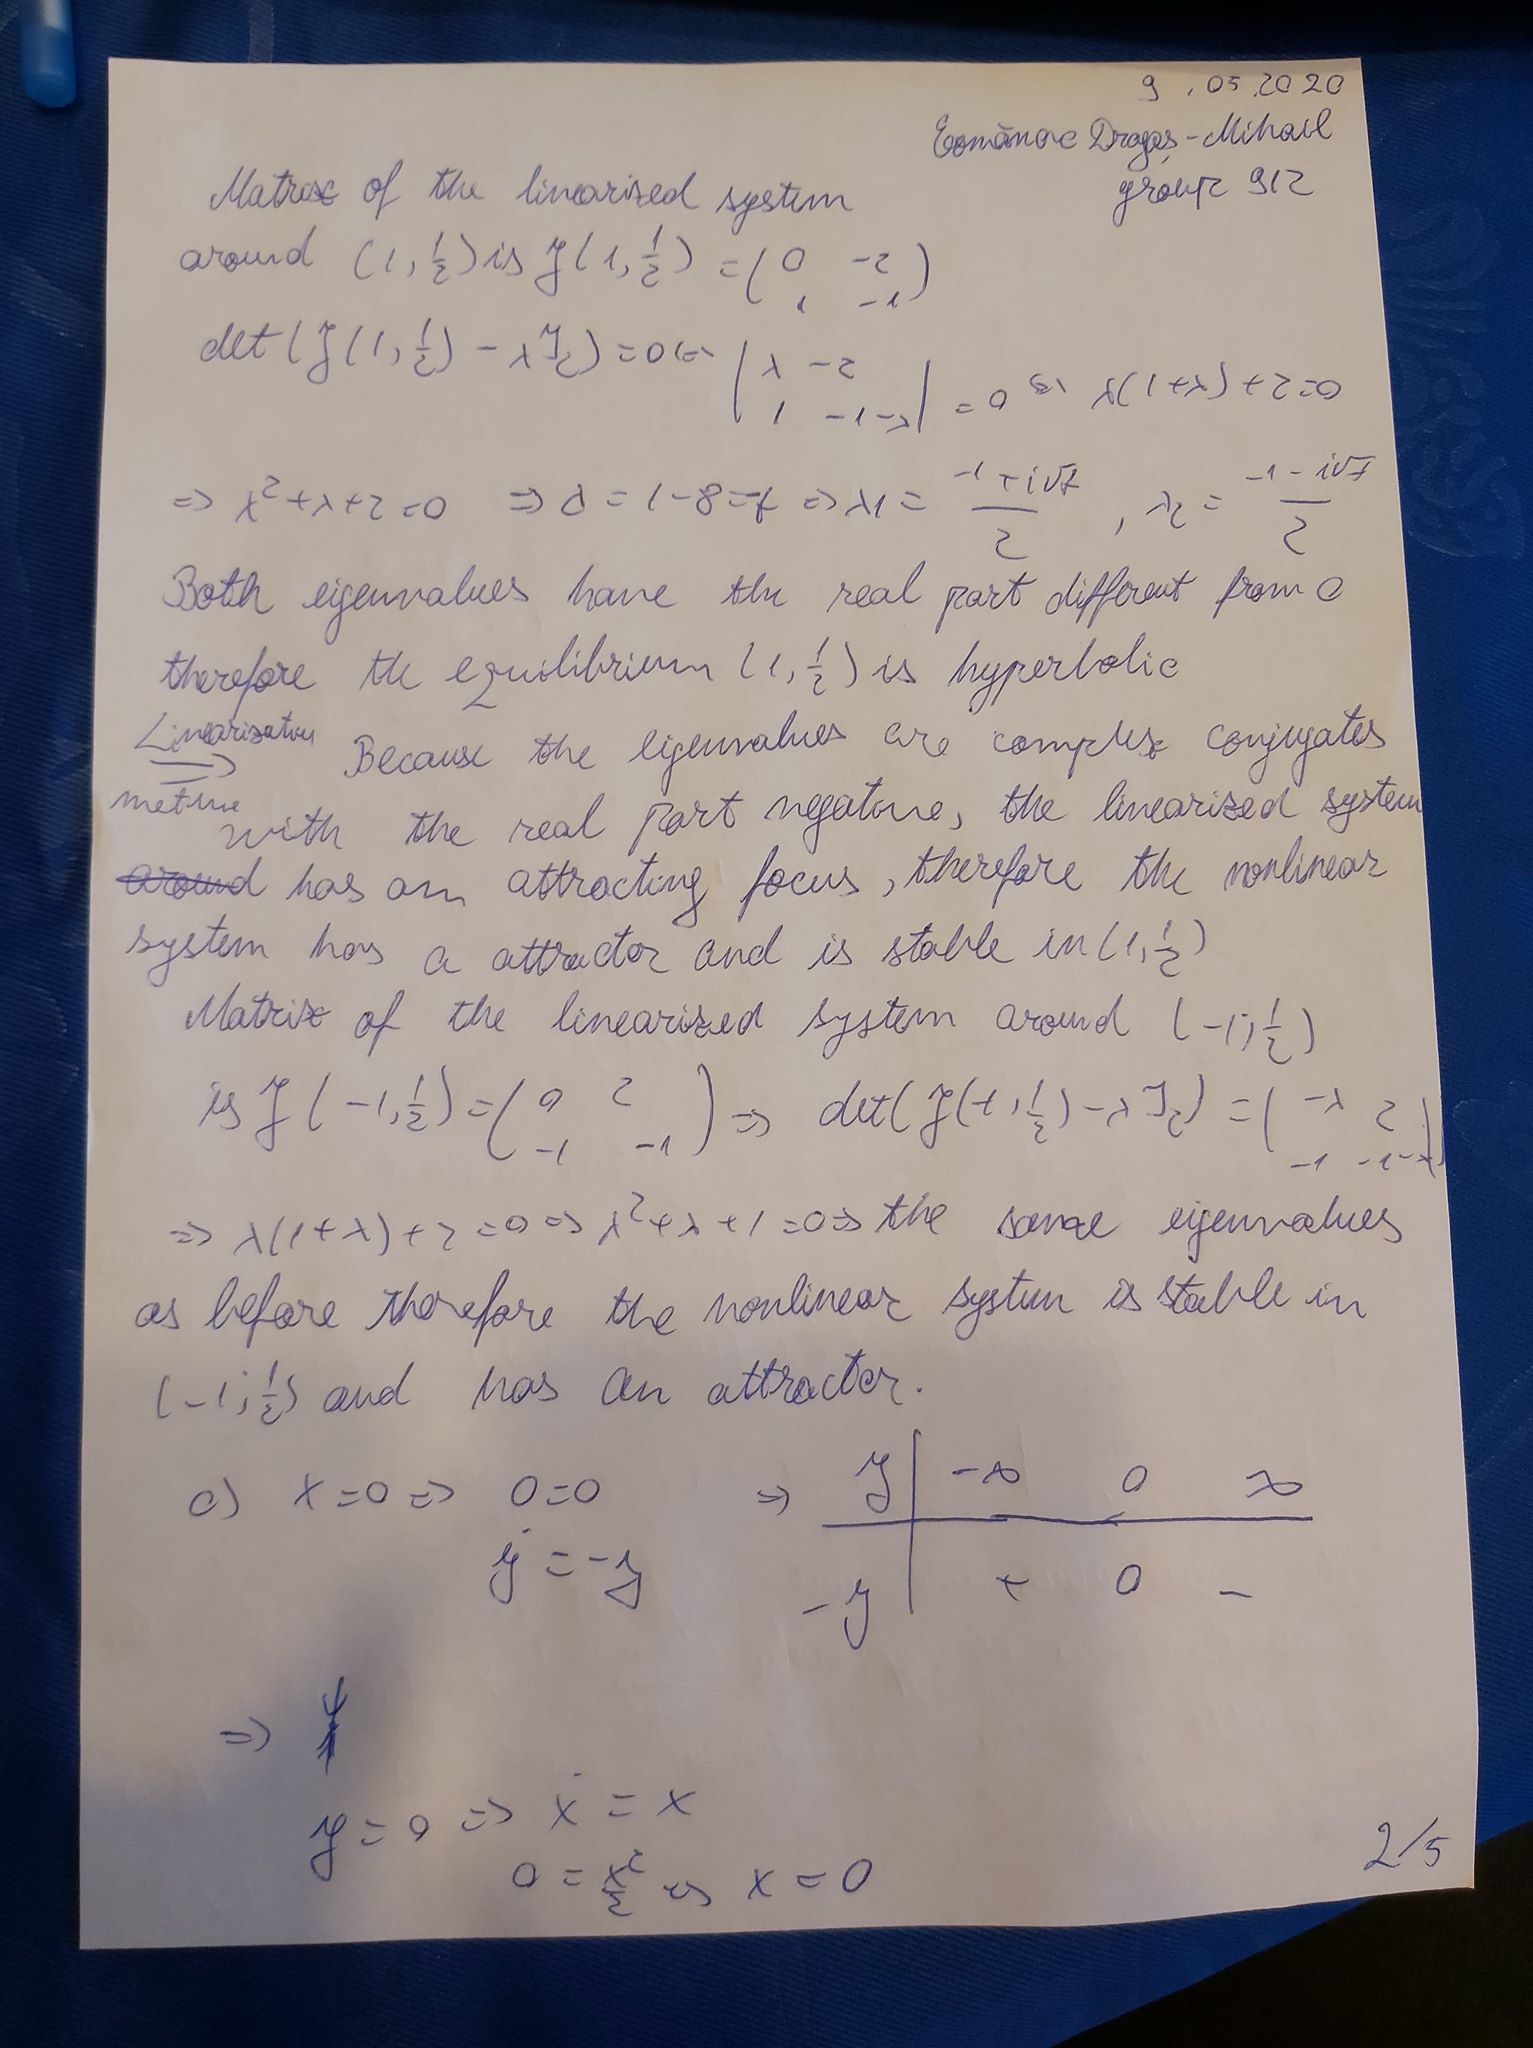 9.05.2020
Dragoș-Mihail
group 912
Matrix of the linearized system
around (1, 1/2) is J(1, 1/2) = (0 -2
1 -1)
det(J(1, 1/2) - λI2) = 0 => |λ -2
1 -1-λ| = 0 <=> λ(1+λ)+2=0
=> λ²+λ+2=0 => Δ = 1-8=-7 => λ1 = (-1+i√7)/2 , λ2 = (-1-i√7)/2
Both eigenvalues have the real part different from 0
therefore the equilibrium (1, 1/2) is hyperbolic
Linearization
=> Because the eigenvalues are complex conjugates
with the real part negative, the linearized system
around has an attracting focus, therefore the nonlinear
system has a attractor and is stable in (1, 1/2)
Matrix of the linearized system around (-1; 1/2)
is J(-1, 1/2) = (0 2
-1 -1) => det(J(-1, 1/2) - λI2) = |-λ 2
-1 -1-λ|
=> λ(1+λ)+2=0 => λ²+λ+1=0 => the same eigenvalues
as before therefore the nonlinear system is stable in
(-1; 1/2) and has an attractor.
c) x=0 => 0=0 => y | -∞ 0 ∞
ẏ = -y -y | + 0 -
=>
y=0 => ẋ = x
0 = x²/2 <=> x = 0
2/5